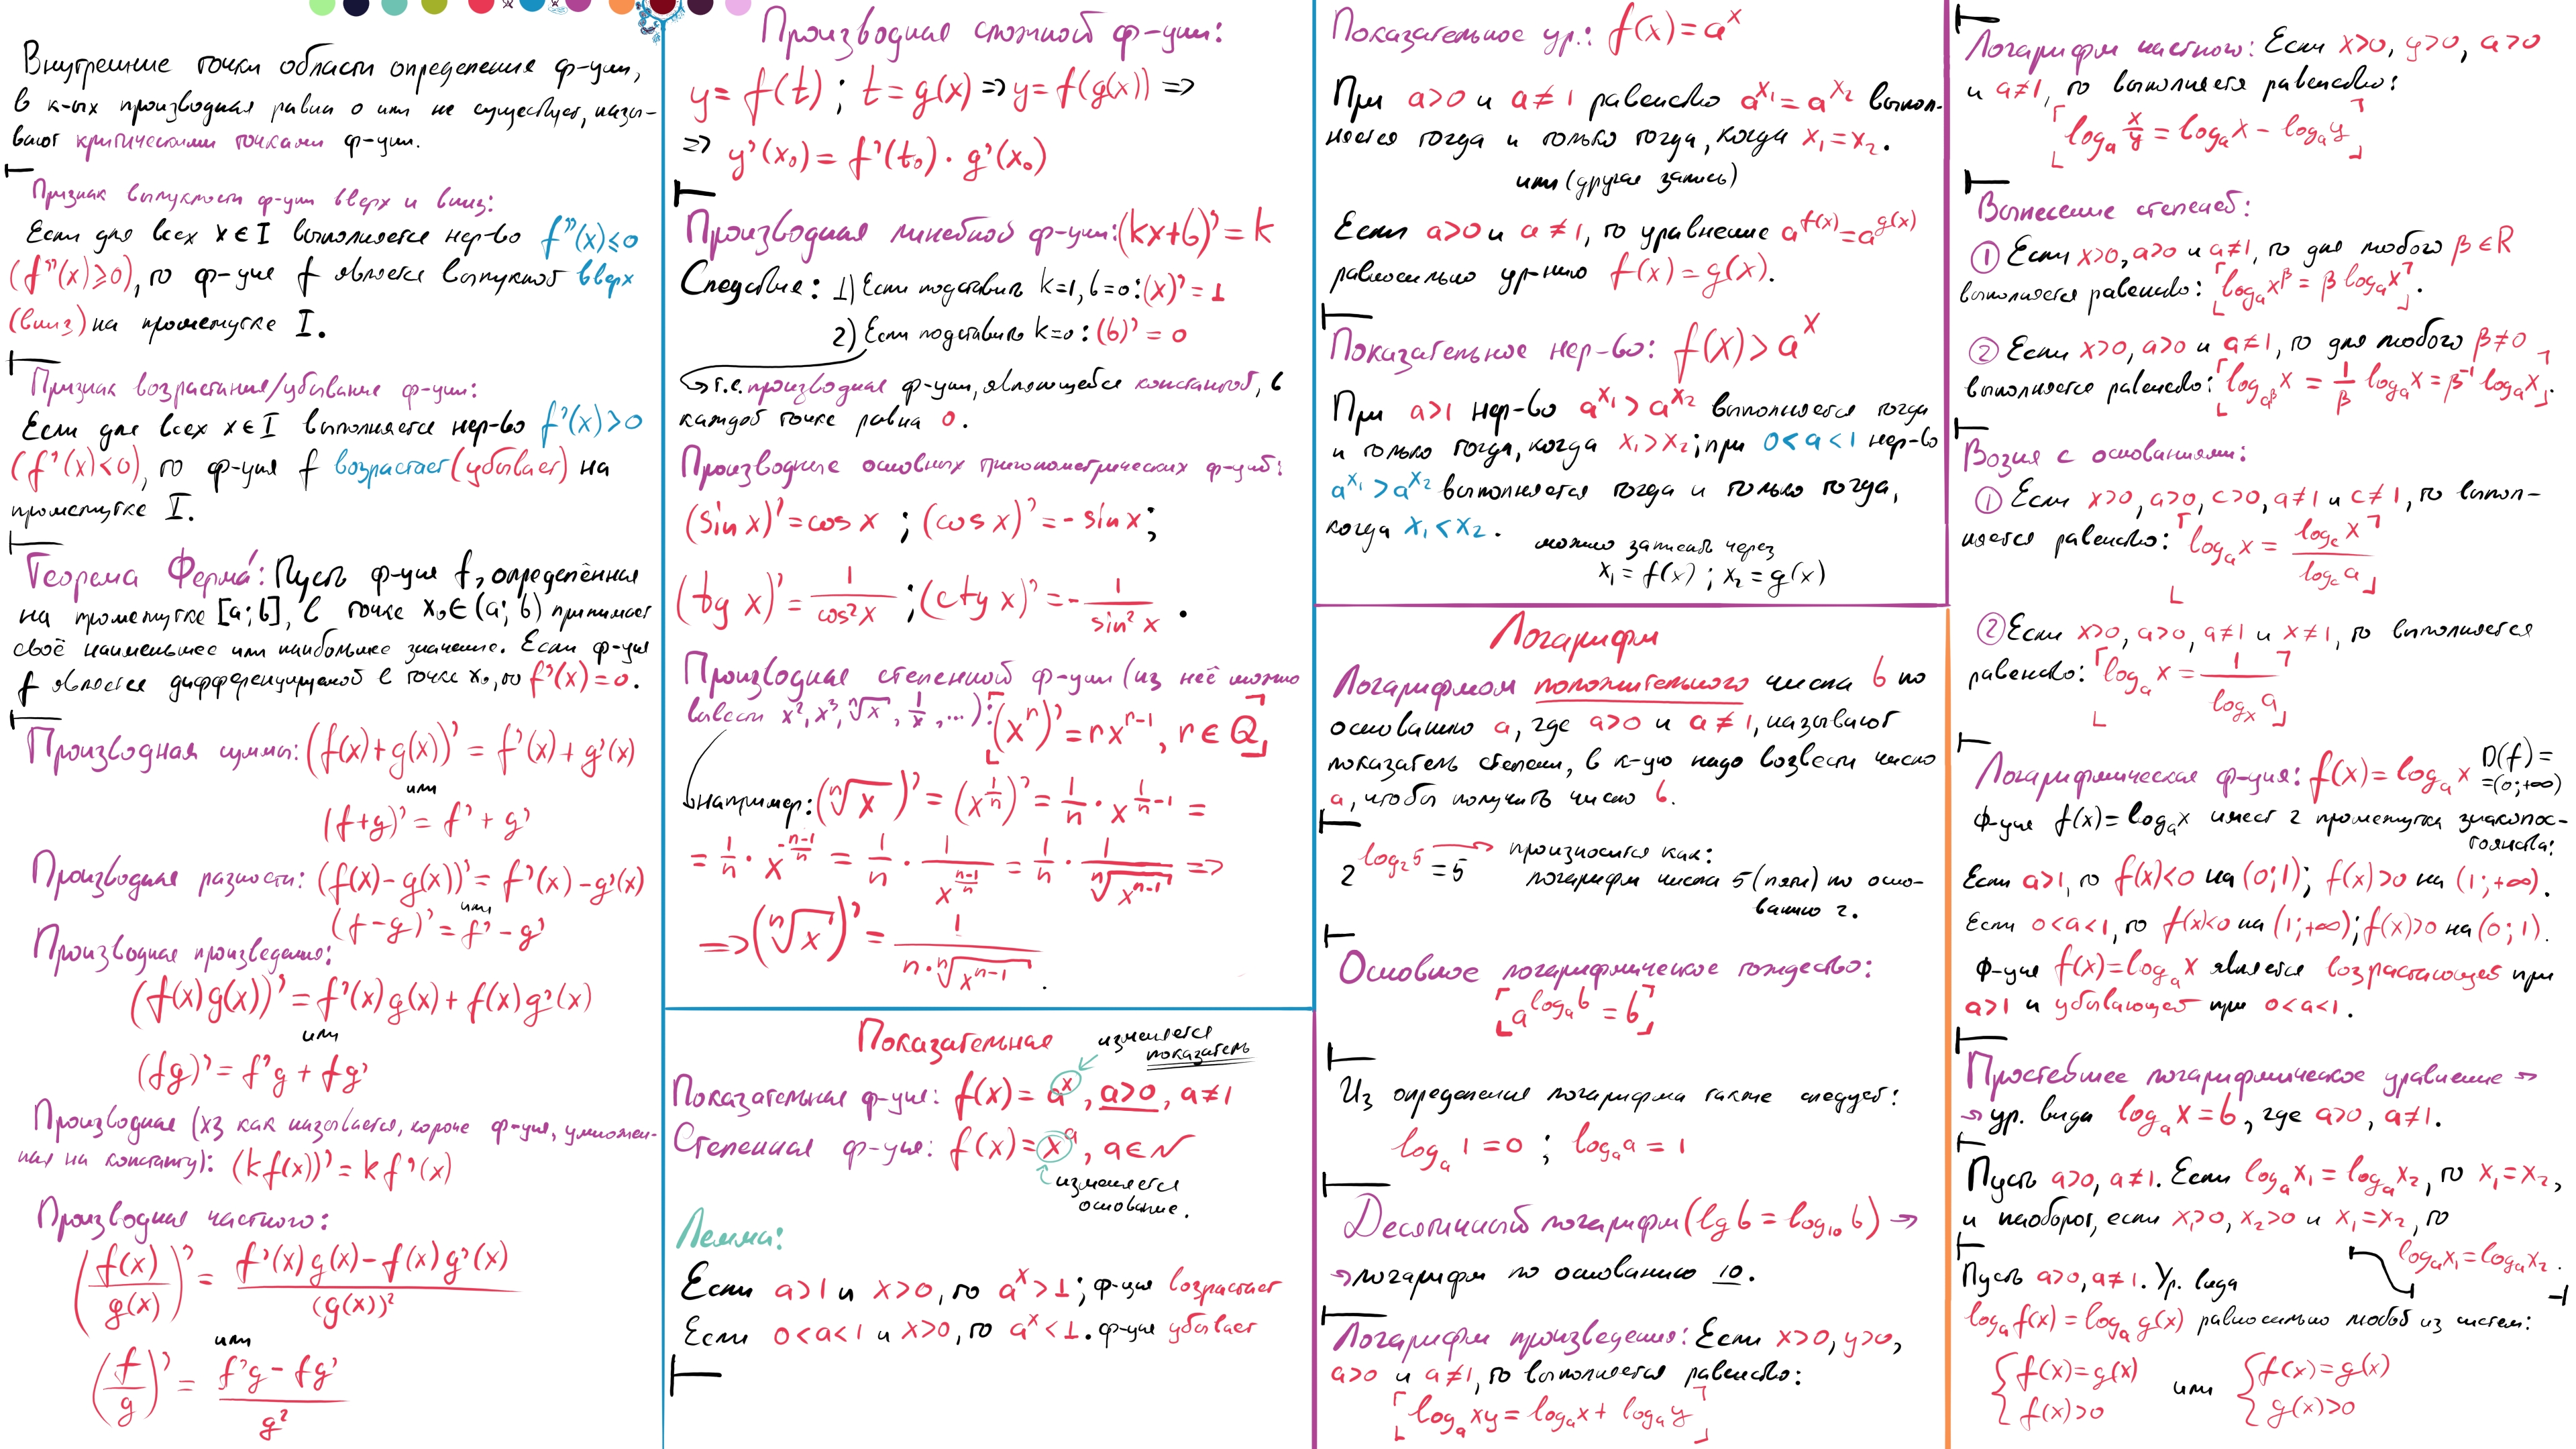 Внутренние точки области определения ф-ции,
в к-ых производная равна 0 или не существует, назы-
вают критическими точками ф-ции.
Признак выпуклости ф-ции вверх и вниз:
Если для всех x ∈ I выполняется нер-во f''(x) ≤ 0
(f''(x) ≥ 0), то ф-ция f является выпуклой вверх
(вниз) на промежутке I.
Признак возрастания/убывание ф-ции:
Если для всех x ∈ I выполняется нер-во f'(x) > 0
(f'(x) < 0), то ф-ция f возрастает (убывает) на
промежутке I.
Теорема Ферма́: Пусть ф-ция f, определённая
на промежутке [a; b], в точке x₀ ∈ (a; b) принимает
своё наименьшее или наибольшее значение. Если ф-ция
f является дифференцируемой в точке x₀, то f'(x) = 0.
Производная суммы: (f(x) + g(x))' = f'(x) + g'(x)
или
(f+g)' = f' + g'
Производная разности: (f(x) - g(x))' = f'(x) - g'(x)
или
(f - g)' = f' - g'
Производная произведения:
(f(x)g(x))' = f'(x)g(x) + f(x)g'(x)
или
(fg)' = f'g + fg'
Производная (хз как называется, короче ф-ция, умножен-
ная на константу): (kf(x))' = kf'(x)
Производная частного:
(f(x)/g(x))' = (f'(x)g(x) - f(x)g'(x))/(g(x))²
или
(f/g)' = (f'g - fg')/g²
Производная сложной ф-ции:
y = f(t) ; t = g(x) => y = f(g(x)) =>
=> y'(x₀) = f'(t₀) · g'(x₀)
Производная линейной ф-ции: (kx+b)' = k
Следствия: 1) Если подставить k=1, b=0: (x)' = 1
2) Если подставить k=0: (b)' = 0
т.е. производная ф-ции, являющейся константой, в
каждой точке равна 0.
Производные основных тригонометрических ф-ций:
(sin x)' = cos x ; (cos x)' = - sin x;
(tg x)' = 1/cos²x ; (ctg x)' = - 1/sin² x .
Производная степенной ф-ции (из неё можно
вывести x², x³, ⁿ√x, 1/x, ...): (xʳ)' = rxʳ⁻¹, r ∈ Q
например: (ⁿ√x)' = (x^(1/n))' = 1/n · x^(1/n - 1) =
= 1/n · x^(-(n-1)/n) = 1/n · 1/x^((n-1)/n) = 1/n · 1/ⁿ√(xⁿ⁻¹) =>
=> (ⁿ√x)' = 1/(n·ⁿ√(xⁿ⁻¹)) .
Показательная
изменяется
показатель
Показательная ф-ция: f(x) = aˣ, a>0, a≠1
Степенная ф-ция: f(x) = xᵃ, a ∈ N
изменяется
основание.
Лемма:
Если a>1 и x>0, то aˣ > 1; ф-ция возрастает
Если 0<a<1 и x>0, то aˣ < 1. ф-ция убывает
Показательное ур.: f(x) = aˣ
При a>0 и a≠1 равенство a^x₁ = a^x₂ выпол-
няется тогда и только тогда, когда x₁ = x₂.
или (другая запись)
Если a>0 и a≠1, то уравнение a^f(x) = a^g(x)
равносильно ур-нию f(x) = g(x).
Показательное нер-во: f(x) > aˣ
При a>1 нер-во a^x₁ > a^x₂ выполняется тогда
и только тогда, когда x₁ > x₂; при 0<a<1 нер-во
a^x₁ > a^x₂ выполняется тогда и только тогда,
когда x₁ < x₂.
можно записать через
x₁ = f(x) ; x₂ = g(x)
Логарифм
Логарифмом положительного числа b по
основанию a, где a>0 и a≠1, называют
показатель степени, в к-ую надо возвести число
a, чтобы получить число b.
2^(log₂5) = 5
произносится как:
логарифм числа 5 (пяти) по осно-
ванию 2.
Основное логарифмическое тождество:
a^(logₐb) = b
Из определения логарифма также следует:
logₐ 1 = 0 ; logₐ a = 1
Десятичный логарифм (lg b = log₁₀ b) →
→ логарифм по основанию 10.
Логарифм произведения: Если x>0, y>0,
a>0 и a≠1, то выполняется равенство:
logₐ xy = logₐx + logₐy
Логарифм частного: Если x>0, y>0, a>0
и a≠1, то выполняется равенство:
logₐ x/y = logₐx - logₐy
Вынесение степеней:
① Если x>0, a>0 и a≠1, то для любого β ∈ R
выполняется равенство: logₐx^β = β logₐx .
② Если x>0, a>0 и a≠1, то для любого β≠0
выполняется равенство: log_(a^β) x = 1/β logₐx = β⁻¹ logₐx .
Возня с основаниями:
① Если x>0, a>0, c>0, a≠1 и c≠1, то выпол-
няется равенство: logₐx = log_c x / log_c a
② Если x>0, a>0, a≠1 и x≠1, то выполняется
равенство: logₐ x = 1/logₓ a
Логарифмическая ф-ция: f(x) = logₐ x D(f) =
=(0;+∞)
Ф-ция f(x) = logₐx имеет 2 промежутка знакопос-
тоянства:
Если a>1, то f(x)<0 на (0;1); f(x)>0 на (1;+∞).
Если 0<a<1, то f(x)<0 на (1;+∞); f(x)>0 на (0;1).
Ф-ция f(x) = logₐ x является возрастающей при
a>1 и убывающей при 0<a<1.
Простейшее логарифмическое уравнение →
→ ур. вида logₐ x = b, где a>0, a≠1.
Пусть a>0, a≠1. Если logₐx₁ = logₐx₂, то x₁=x₂,
и наоборот, если x₁>0, x₂>0 и x₁=x₂, то
logₐx₁ = logₐx₂.
Пусть a>0, a≠1. Ур. вида
logₐf(x) = logₐ g(x) равносильно любой из систем:
{f(x)=g(x) или {f(x)=g(x)
{f(x)>0 {g(x)>0